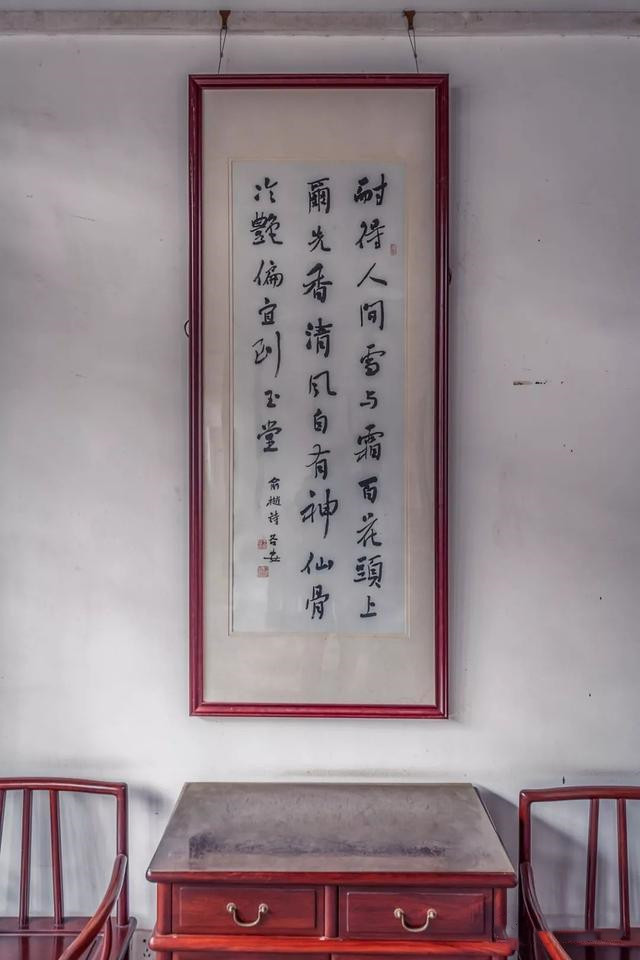 耐得人间雪与霜百花頭上
爾先香清风自有神仙骨
冷艷偏宜到玉堂
俞樾诗